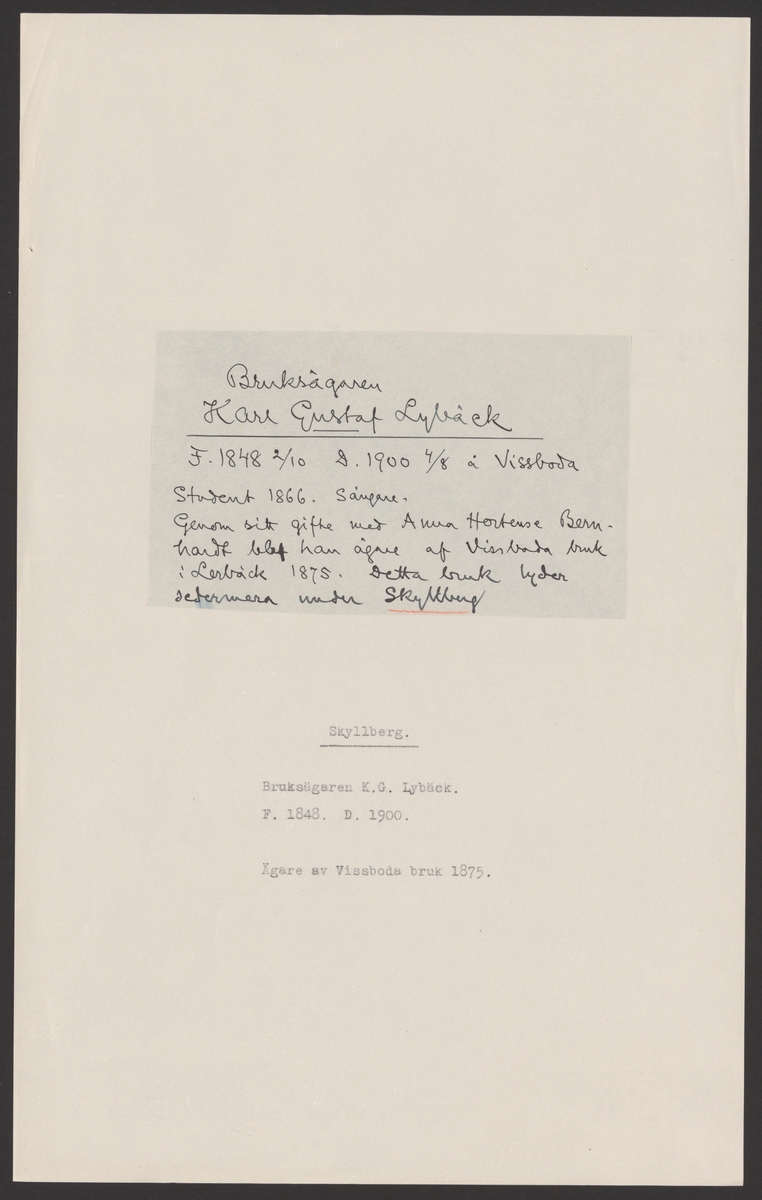 Bruksägaren
Karl Gustaf Lybäck
F. 1848 2/10 D. 1900 4/8 å Vissboda
Student 1866. Sångare.
Genom sitt gifte med Anna Hortense Bern-
hardt blef han ägare af Vissboda bruk
i Lerbäck 1875. Detta bruk lyder
sedermera under Skyllberg
Skyllberg.
Bruksägaren K.G. Lybäck.
F. 1848. D. 1900.
Ägare av Vissboda bruk 1875.